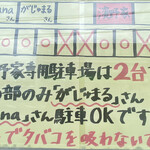 una がじゅまる
野家専用駐車場は2台
の部のみ「がじゅまる」さん
una」さん駐車OKです
でタバコを吸わないで